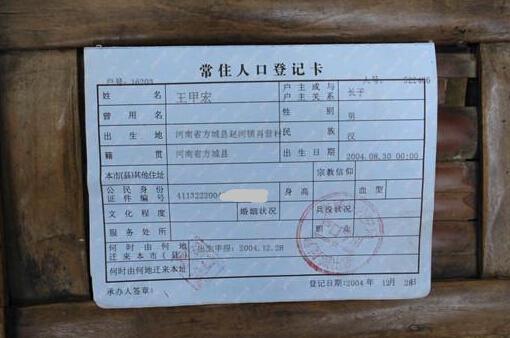 常住人口登记卡
户号: 16203
姓名 王甲宏 户主或与户主关系 长子
曾用名 性别 男
出生地 河南省方城县赵河镇肖营村 民族 汉
籍贯 河南省方城县 出生日期 2004.08.30 00:00
本市(县)其他住址 宗教信仰
公民身份证件编号 4113222004 身高 血型
文化程度 婚姻状况 兵役状况
服务处所 职业
何时由何地迁来本市(县) 出生申报: 2004.12.28
何时由何地迁来本址
承办人签章: 登记日期:2004 年 12月 28日